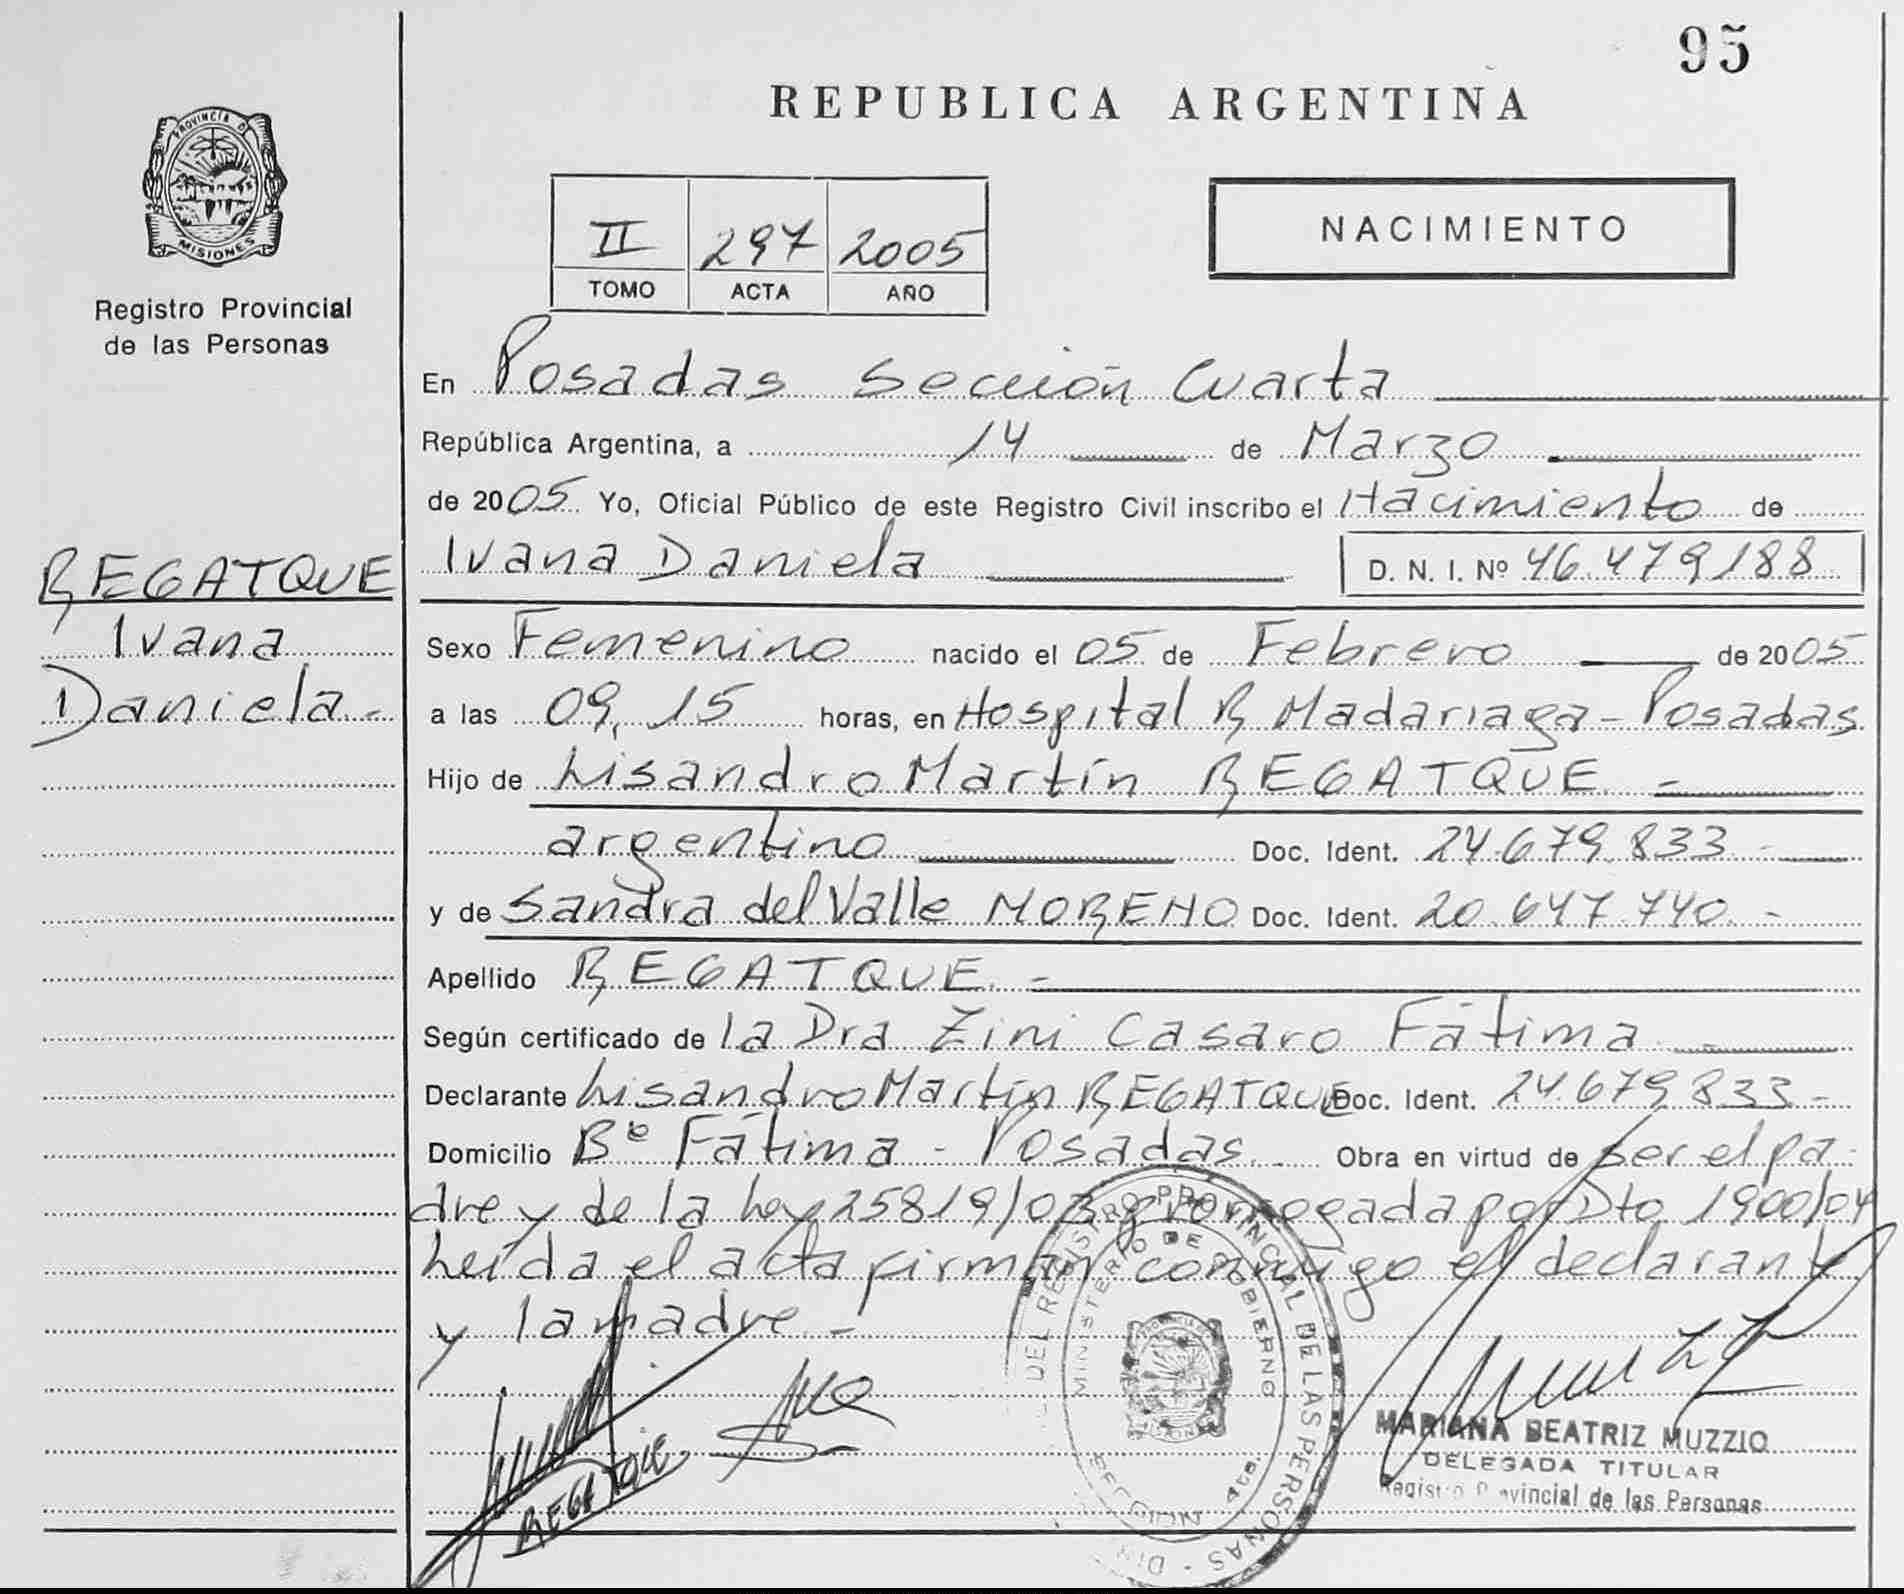 95
REPUBLICA ARGENTINA
PROVINCIA D
MISIONES
Registro Provincial
de las Personas
II 297 2005
TOMO ACTA AÑO
NACIMIENTO
En Posadas Sección Cuarta
República Argentina, a 14 de Marzo
de 2005 Yo, Oficial Público de este Registro Civil inscribo el Nacimiento de
Ivana Daniela D. N. I. Nº 46.479.188
REGATQUE
Ivana
Daniela.-
Sexo Femenino nacido el 05 de Febrero de 2005
a las 09,15 horas, en Hospital R Madariaga - Posadas
Hijo de Lisandro Martín REGATQUE.-
argentino Doc. Ident. 24.679.833 -
y de Sandra del Valle MORENO Doc. Ident. 20.647.740.-
Apellido REGATQUE.-
Según certificado de la Dra Zini Casaro Fátima.-
Declarante Lisandro Martín REGATQUE Doc. Ident. 24.679.833-
Domicilio Bº Fátima - Posadas. Obra en virtud de ser el pa-
dre y de la Ley 25819/03 prorrogada por Dto 1900/04
Leída el acta firman conmigo el declarante
y la madre.-
REGATQUE
DEL REGISTRO PROVINCIAL DE LAS PERSONAS
MINISTERIO DE GOBIERNO
SECCION 4ta.
MARIANA BEATRIZ MUZZIO
DELEGADA TITULAR
Registro Provincial de las Personas